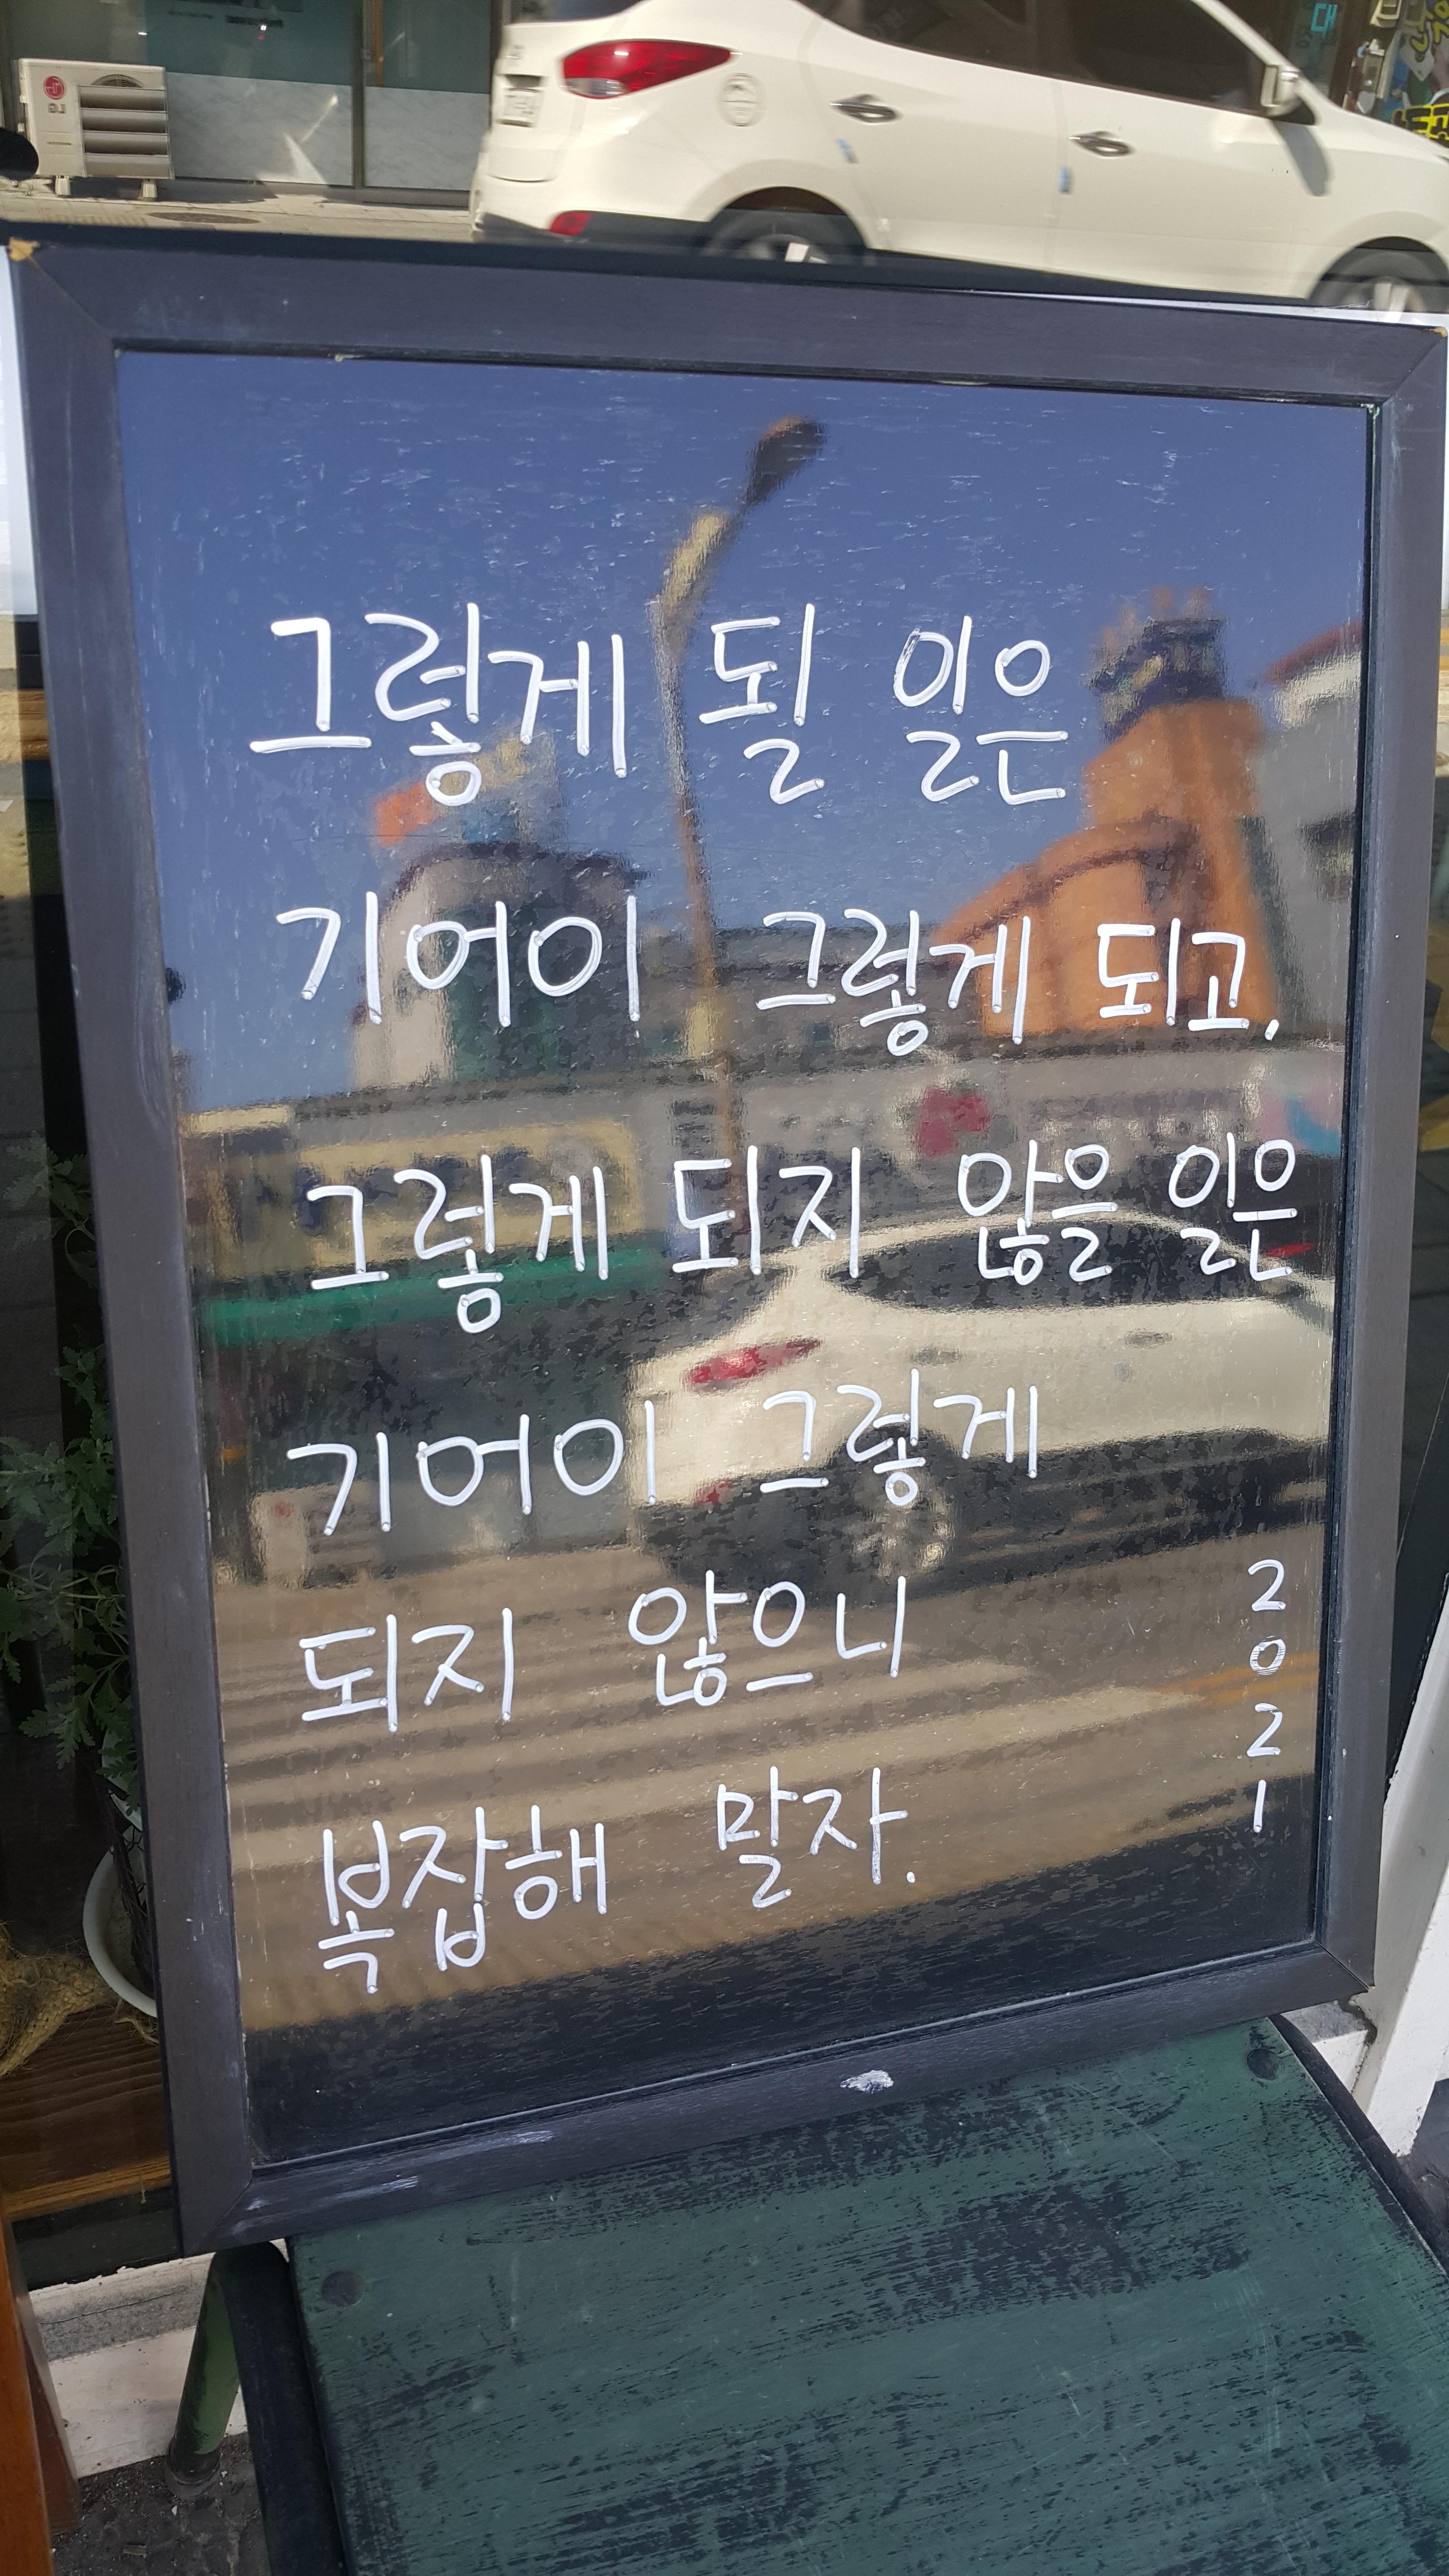 LG
그렇게 될 일은
기어이 그렇게 되고,
그렇게 되지 않을 일은
기어이 그렇게
되지 않으니
복잡해 말자.
2
0
2
1